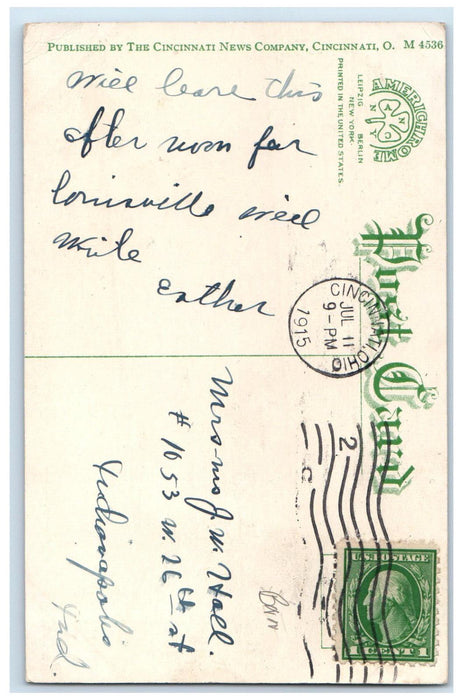 PUBLISHED BY THE CINCINNATI NEWS COMPANY, CINCINNATI, O. M 4536
Will leave this
after noon for
Louisville will
write
Esther
AMERICHROME
ANC
NY
LEIPZIG BERLIN
NEW YORK
PRINTED IN THE UNITED STATES.
Post Card
CINCINNATI, OHIO
JUL 11
9-PM
1915
2
C
U.S. POSTAGE
1 CENT 1
J. W. Hall.
# 1053 W. 26th st
Indianapolis
Ind.